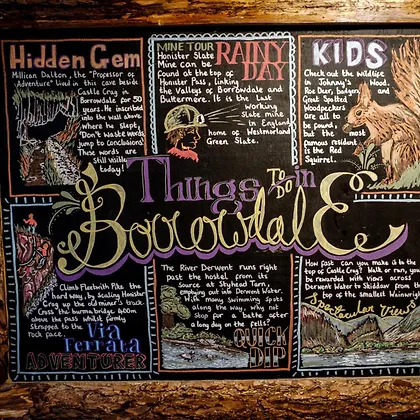 Hidden Gem
Millican Dalton, the "Professor of
Adventure" lived in this cave beside
Castle Crag in
Borrowdale for 50
years. He inscribed
into the wall above
where he slept,
"Don't waste words
jump to conclusions"
These words are
still visible
today!
MINE TOUR
RAINY
DAY
Honister Slate
Mine can be
found at the top of
Honister Pass, linking
the Valleys of Borrowdale and
Buttermere. It is the last
working
slate mine
in England,
home of Westmorland
Green Slate.
KIDS
Check out the wildlife
in Johnny's Wood.
Roe Deer, badgers, and
Great Spotted
Woodpeckers
are all to
be found,
but the most
famous resident
is the Red
Squirrel.
Things To Do in
Borrowdale
Climb Fleetwith Pike the
hard way, by scaling Honister
Crag up the old miner's track.
Cross the burma bridge 400m
above the pass whilst firmly
strapped to the
rock face.
Via
Ferrata
ADVENTURER
The River Derwent runs right
past the hostel, from its
source at Styhead Tarn,
emptying out into Derwent Water.
With many swimming spots
along the way, why not
stop for a bathe after
a long day on the fells!
QUICK
DIP
How fast can you make it to the
top of Castle Crag? Walk or run, you'll
be rewarded with views across
Derwent Water to Skiddaw from the
top of the smallest Wainwright
Spectacular Views